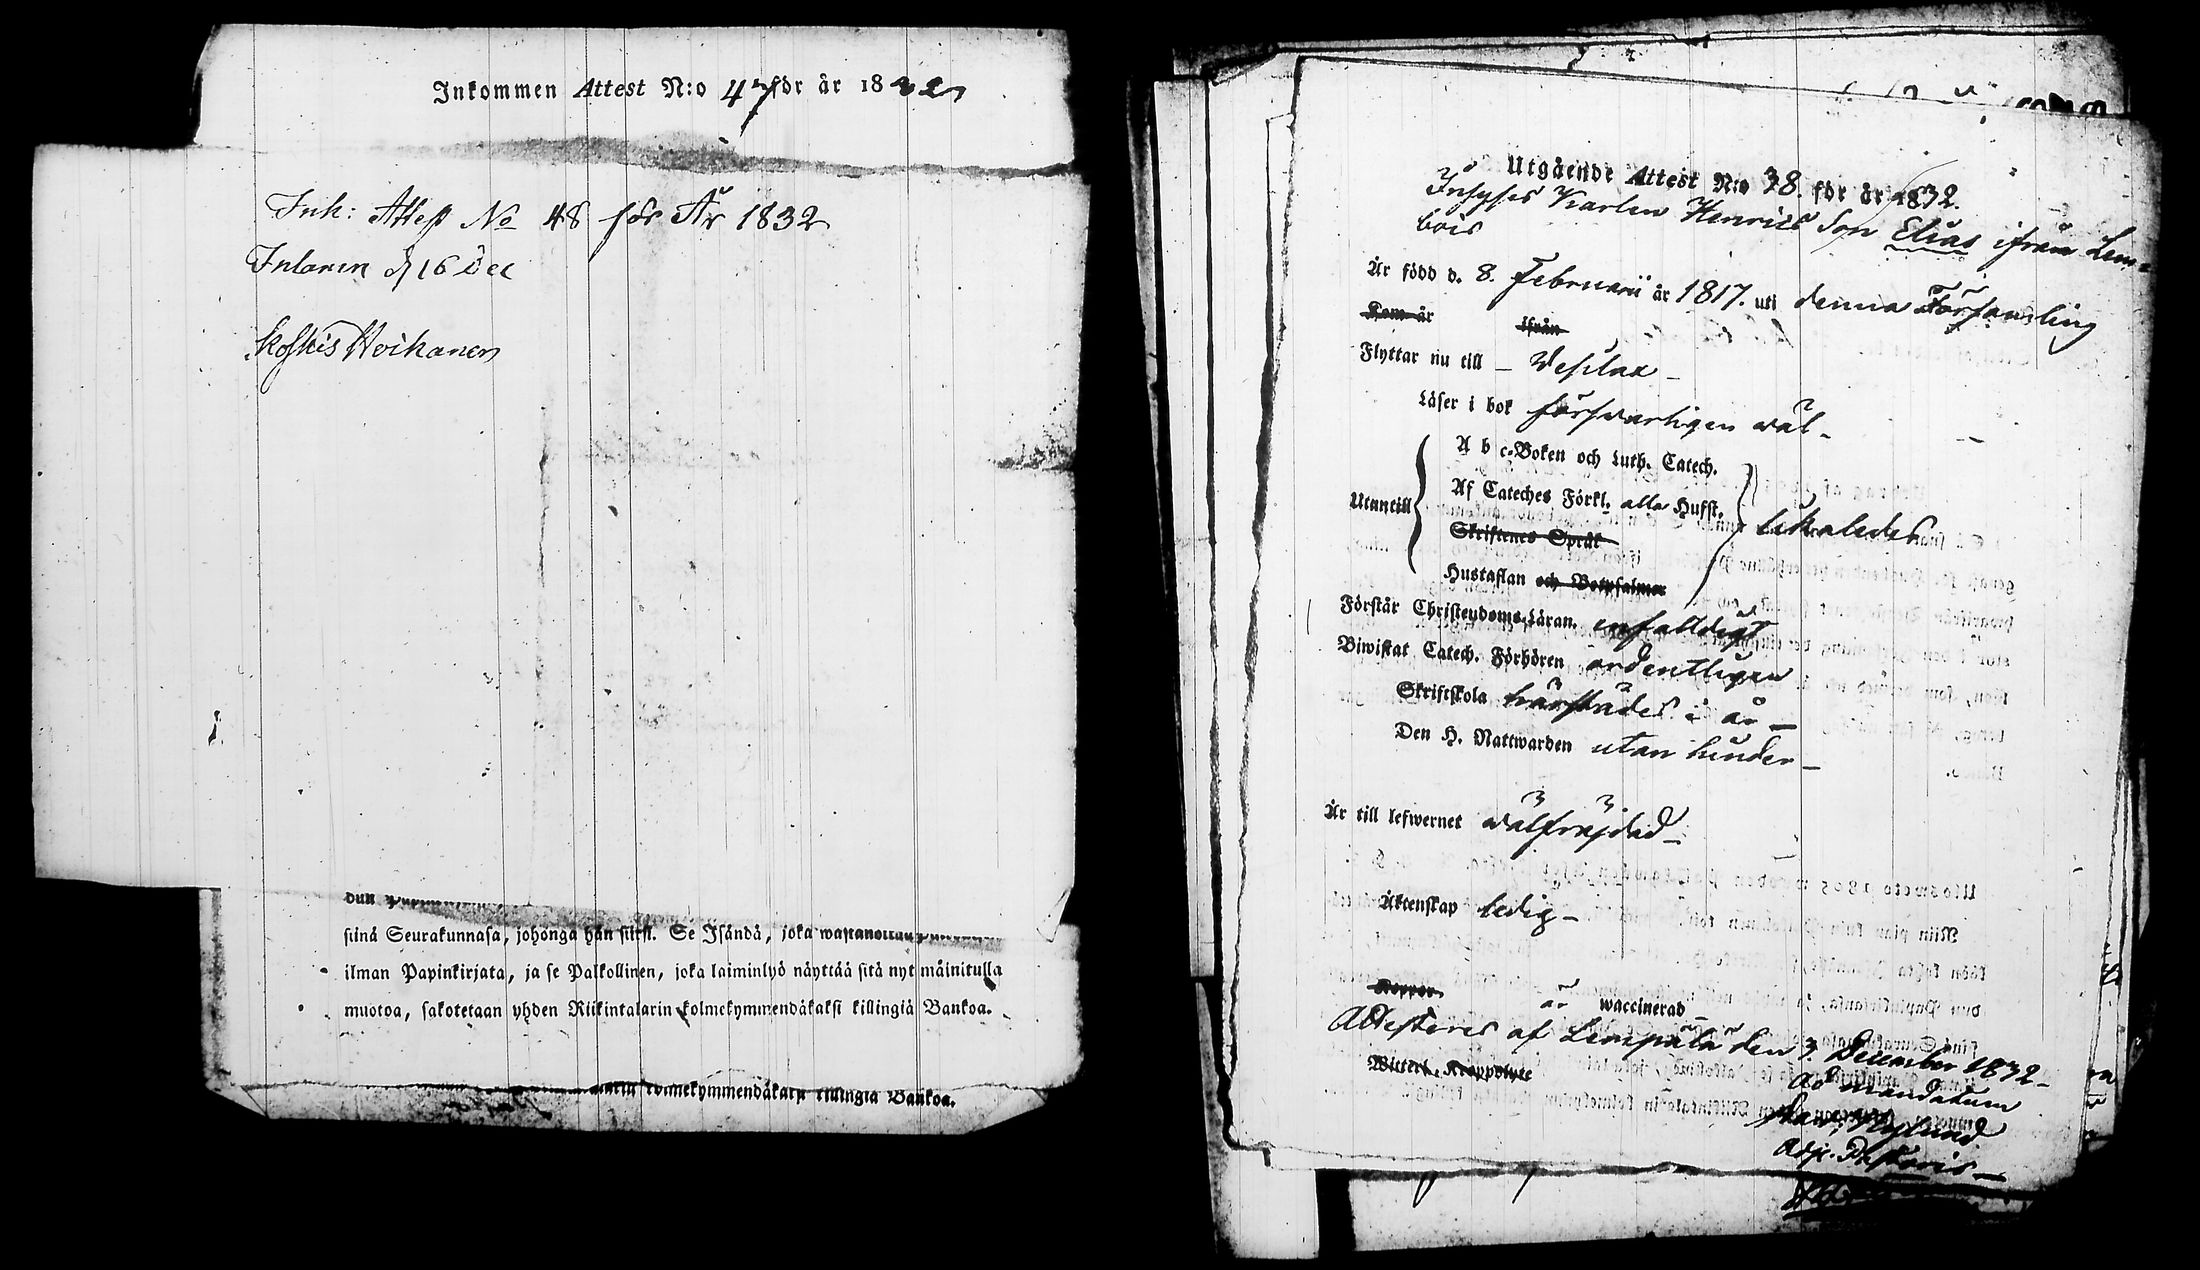 Inkommen Attest N:o 47 för år 1832
Ink: Attest No 48 för År 1832
d 16 Dec
siinä Seurakunnasa, johonga hän siirsi. Se Isändä, joka
ilman Papinkirjata, ja se Palkollinen, joka laiminlyö näyttää sitä nyt mainitulla
muotoa, sakotetaan yhden Riikintalarin kolmekymmendäkaksi killingiä Bankoa.
kolmekymmendäkaksi killingiä Bankoa.
Utgående Attest N:o 38. för år 1832.
Karlen Henrics Son Elias ifrån Lem=
böis
Är född d. 8. Februarii år 1817. uti denna Församling
Kom år ifrån
Flyttar nu till – Vesilax –
Läser i bok försvarligen väl –
A b c-Boken och Luth. Catech.
Utantill Af Cateches Förkl. alla Hufst. likaledes
Skriftenes Språk
Hustaflan och Botpsalmer
Förstår Christendoms-Läran. enfaldigt
Biwistat Catech. Förhören ordentligen
Skriftskola härstädes i år –
Den H. Nattwarden utan hinder –
Är till lefwernet välfrejdad –
Äktenskap ledig –
Koppor
är waccinerad
Attesteres af Lempälä den 3. December 1832 –
Wictert. Kroppslyte
ad mandatum
Nylund
Adj. Pastoris –